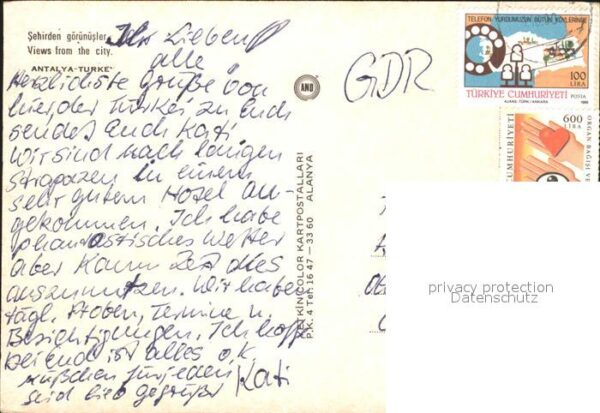 Şehirden görünüşler
Views from the city.
ANTALYA-TURKEY
Ihr Lieben
alle
Herzlichste Grüße von
hier, der Türkei zu Euch
sendet Euch Kati
Wir sind nach langen
Strapazen in einem
sehr gutem Hotel an-
gekommen. Ich habe
phantastisches Wetter
aber kaum Zeit dies
auszunutzen. Wir haben
tägl. Proben, Termine u.
Besichtigungen. Ich hoffe
bei Euch ist alles o.k.
Küßchen für jeden
seid lieb gegrüßt Kati
AND
GDR
KETKİNCOLOR KARTPOSTALLARI
P.K. 4 Tel: 16 47 - 33 60 ALANYA
TELEFON YURDUMUZUN BÜTÜN KÖYLERİNDE
100
LIRA
POSTA
TÜRKİYE CUMHURİYETİ
AJANS-TÜRK/ANKARA 1988
600
LIRA
ORGAN BAĞIŞI VE
CUMHURİYETİ
privacy protection
Datenschutz